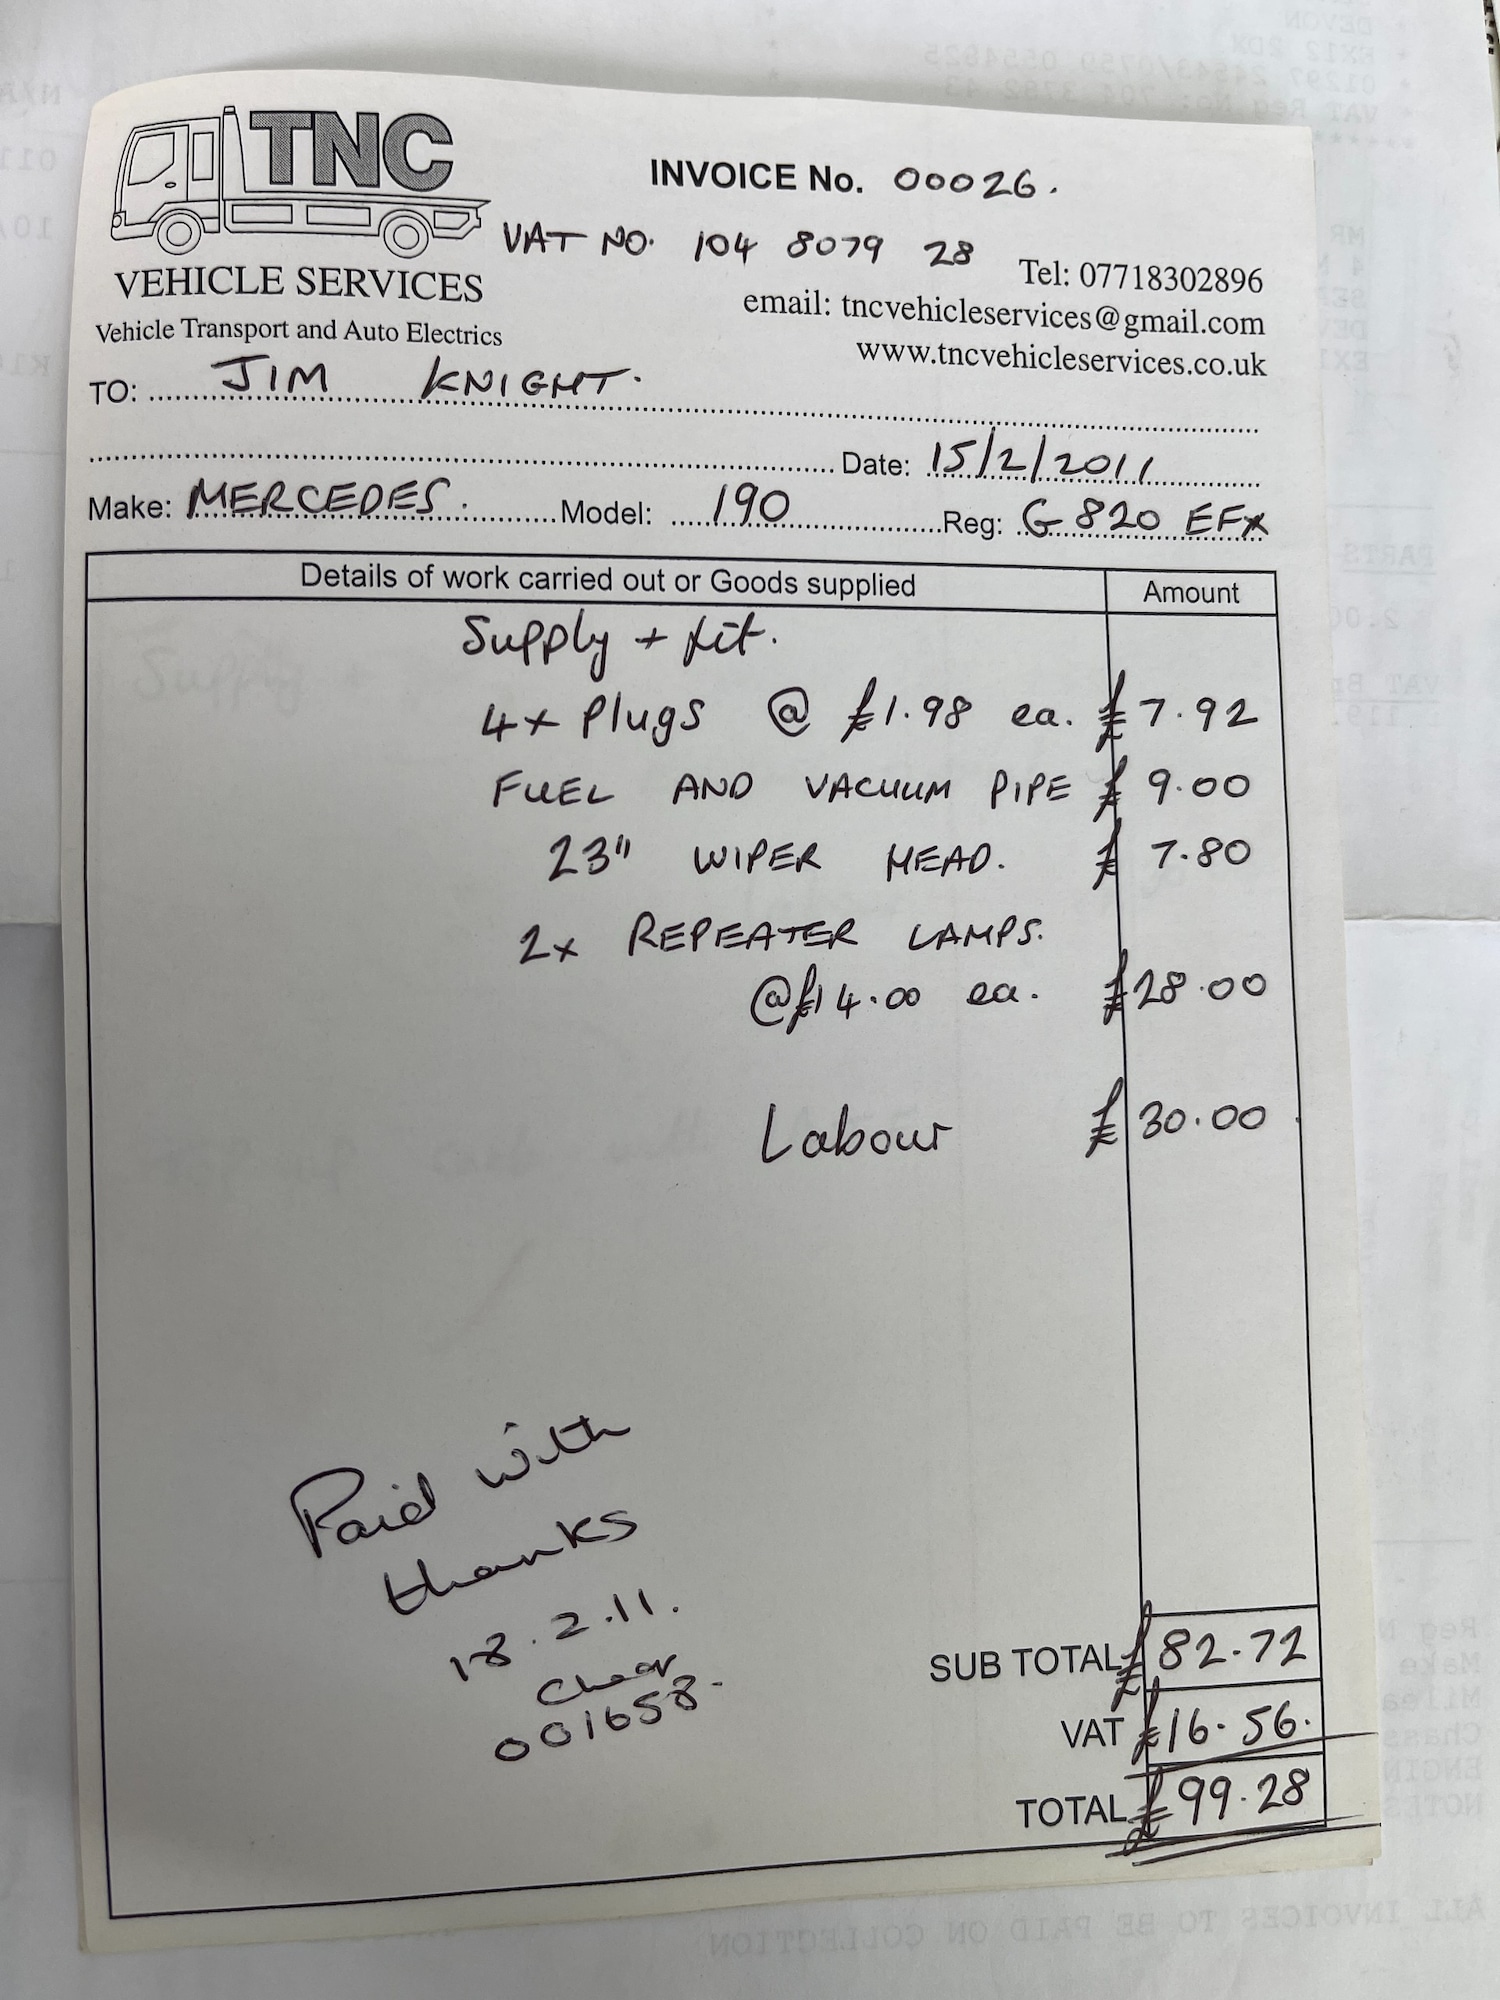 TNC
INVOICE No. 00026.
VAT NO. 104 8079 28
VEHICLE SERVICES
Tel: 07718302896
Vehicle Transport and Auto Electrics
email: tncvehicleservices@gmail.com
www.tncvehicleservices.co.uk
TO: JIM KNIGHT.
Date: 15/2/2011
Make: MERCEDES. Model: 190 Reg: G 820 EFX
Details of work carried out or Goods supplied Amount
Supply + fit.
4x Plugs @ £1.98 ea. £7.92
FUEL AND VACUUM PIPE £9.00
23" WIPER HEAD. £7.80
2x REPEATER LAMPS.
@£14.00 ea. £28.00
Labour £30.00
Paid with
thanks
18.2.11.
001658.
SUB TOTAL £82.72
VAT £16.56.
TOTAL £99.28
ALL INVOICES TO BE PAID ON COLLECTION